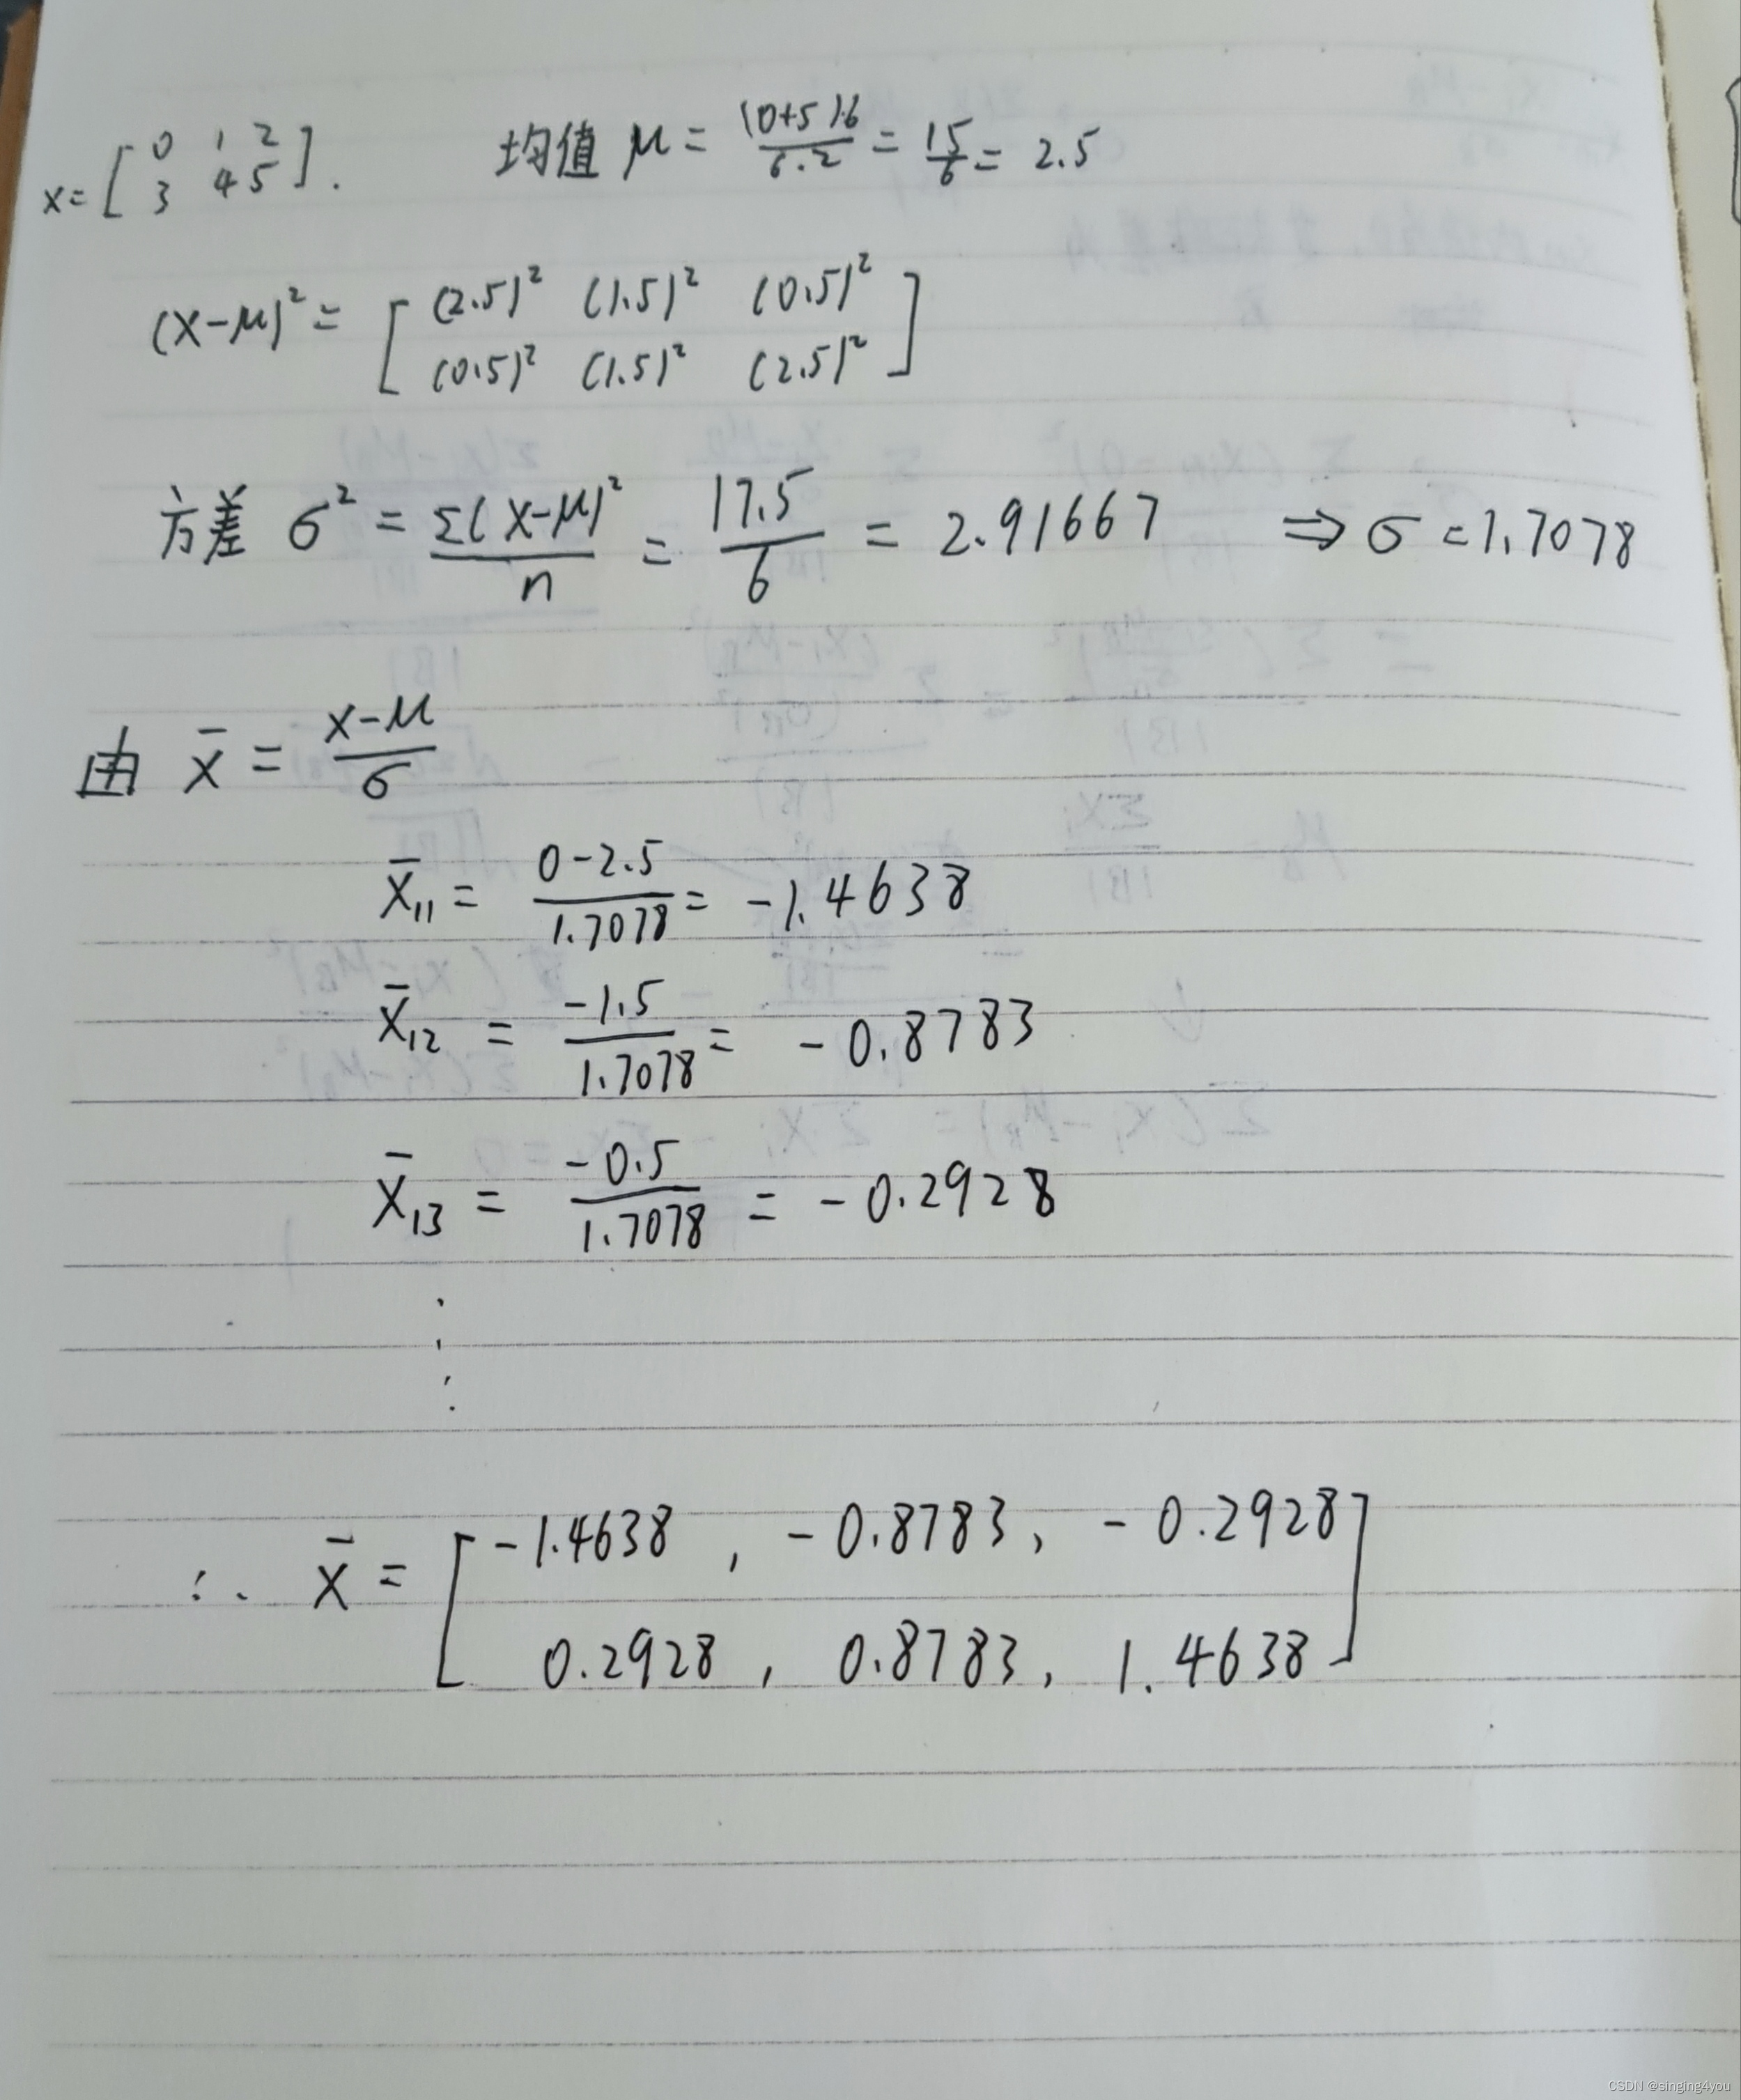 x = [ 0 1 2
3 4 5 ] . 均值 μ = (0+5)·6 / 6·2 = 15/6 = 2.5
(x-μ)² = [ (2.5)² (1.5)² (0.5)²
(0.5)² (1.5)² (2.5)² ]
方差 σ² = Σ(x-μ)² / n = 17.5 / 6 = 2.91667 ⇒ σ = 1.7078
由 x̄ = x-μ / σ
x̄₁₁ = 0-2.5 / 1.7078 = -1.4638
x̄₁₂ = -1.5 / 1.7078 = -0.8783
x̄₁₃ = -0.5 / 1.7078 = -0.2928
⋮
∴ x̄ = [ -1.4638 , -0.8783, -0.2928
0.2928 , 0.8783, 1.4638 ]
CSDN @singing4you